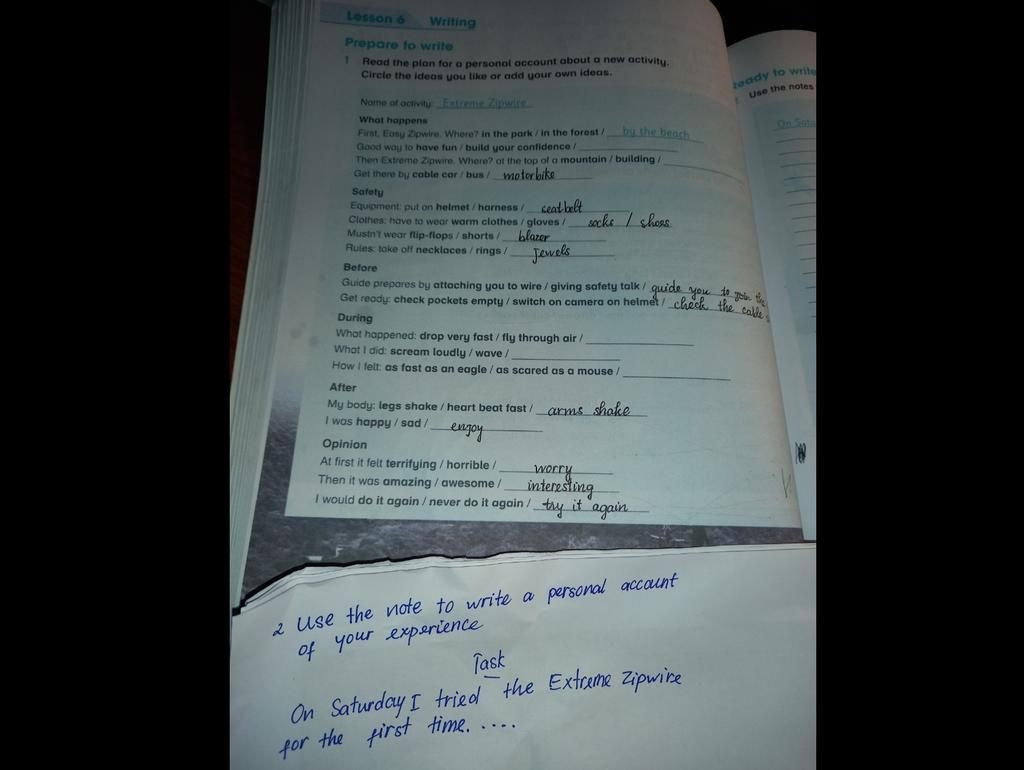 Lesson 6 Writing
Prepare to write
1 Read the plan for a personal account about a new activity.
Circle the ideas you like or add your own ideas.
Name of activity: Extreme Zipwire
What happens
First, Easy Zipwire. Where? in the park / in the forest / by the beach
Good way to have fun / build your confidence /
Then Extreme Zipwire. Where? at the top of a mountain / building /
Get there by cable car / bus / motorbike
Safety
Equipment: put on helmet / harness / seatbelt
Clothes: have to wear warm clothes / gloves / socks / shoes
Mustn't wear flip-flops / shorts / blazer
Rules: take off necklaces / rings / jewels
Before
Guide prepares by attaching you to wire / giving safety talk / guide you to join the
Get ready: check pockets empty / switch on camera on helmet / check the cable
During
What happened: drop very fast / fly through air /
What I did: scream loudly / wave /
How I felt: as fast as an eagle / as scared as a mouse /
After
My body: legs shake / heart beat fast / arms shake
I was happy / sad / enjoy
Opinion
At first it felt terrifying / horrible / worry
Then it was amazing / awesome / interesting
I would do it again / never do it again / try it again
Ready to write
Use the notes
On Satu
2 Use the note to write a personal account
of your experience
Task
On Saturday I tried the Extreme Zipwire
for the first time. ....